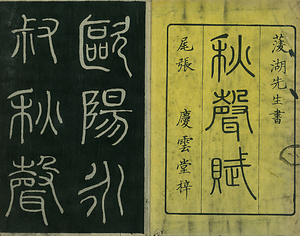 菱湖先生書
秋聲賦
尾張 慶雲堂梓
歐陽永
叔秋聲